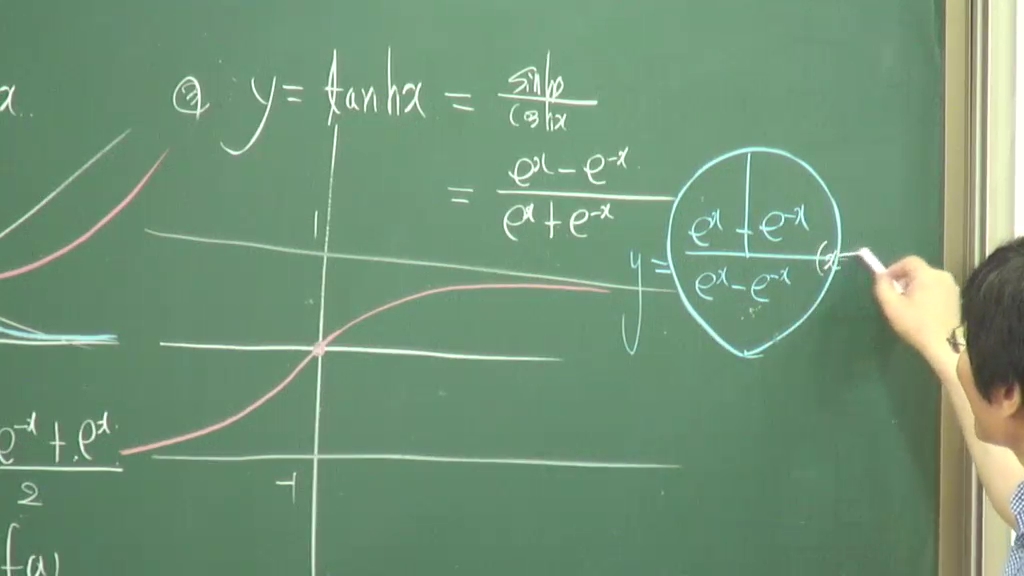 x
③ y = tanhx = sinhx / coshx
= e^x - e^-x / e^x + e^-x
y = e^x + e^-x / e^x - e^-x (x
1
-1
e^-x + e^x / 2
f(x)